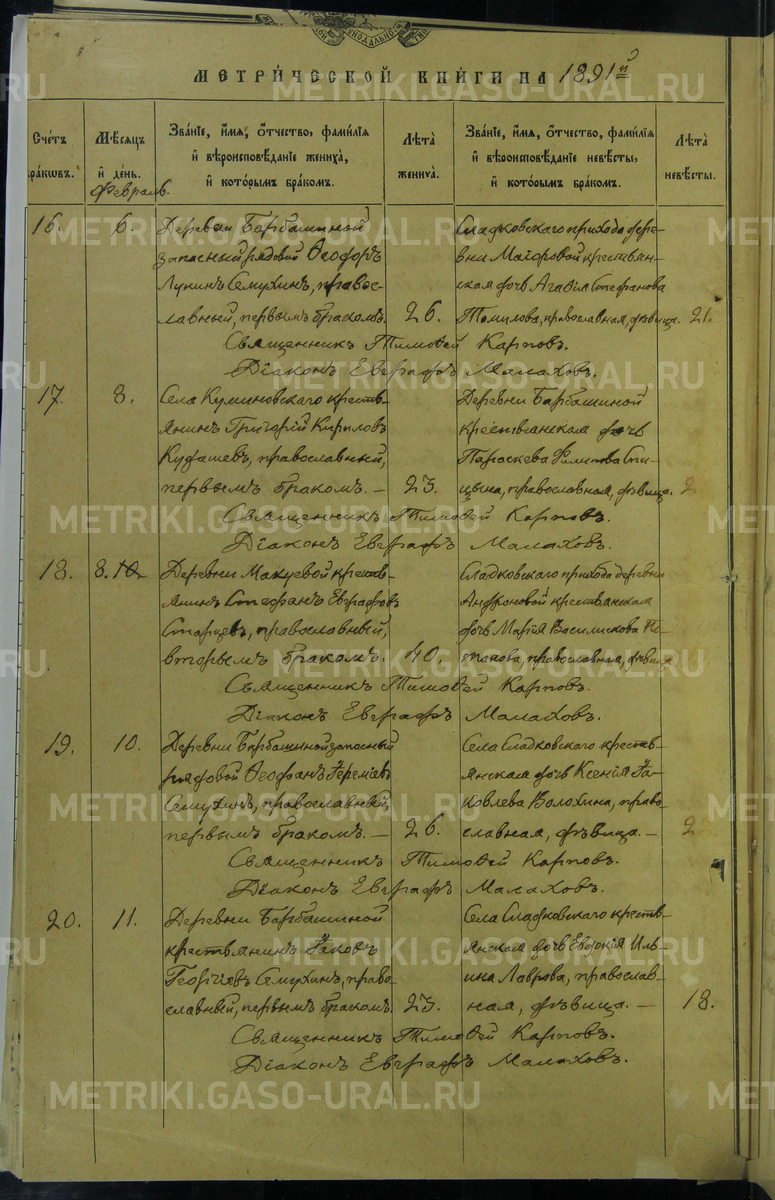 МЕТРИ́ЧЕСКОЙ КНИ́ГИ НА 1891й
Сче́тъ бра́ковъ.
Мѣ́сяцъ и҆ день.
Зва́нїе, и҆́мѧ, ѻ҆́тчество, фамѝлїѧ и҆ вѣроисповѣ́данїе жениха̀, и҆ кото́рымъ бра́комъ.
Лѣ́та жениха̀.
Зва́нїе, и҆́мѧ, ѻ҆́тчество, фамѝлїѧ и҆ вѣроисповѣ́данїе невѣ́сты, и҆ кото́рымъ бра́комъ.
Лѣ́та невѣ́сты.
Февраль.
16.
6.
Деревни Барбашиной
запасный рядовой Ѳеодоръ
Лукинъ Семухинъ, правос-
лавный, первымъ бракомъ.
26.
Сладковскаго прихода дере-
вни Маіоровой крестьян-
ская дочь Агаѳія Стефанова
Томилова, православная, дѣвица.
21.
Священникъ Тимоѳей Карповъ.
Діаконъ Евграфъ Малаховъ.
17.
8.
Села Куминовскаго кресть-
янинъ Григорій Кириловъ
Кудашевъ, православный,
первымъ бракомъ. —
23.
Деревни Барбашиной
крестьянская дочь
Параскева Спи-
цына, православная, дѣвица.
2
Священникъ Тимоѳей Карповъ.
Діаконъ Евграфъ Малаховъ.
18.
8.
Деревни Макуевой кресть-
янинъ Стефанъ Евграфовъ
Старцевъ, православный,
вторымъ бракомъ.
40.
Сладковскаго прихода деревни
Андроновой крестьянская
дочь Марія Василискова По-
тапова, православная, дѣвица
Священникъ Тимоѳей Карповъ.
Діаконъ Евграфъ Малаховъ.
19.
10.
Деревни Барбашиной запасный
рядовой Ѳеофанъ Іереміевъ
Семухинъ, православный,
первымъ бракомъ. —
26.
Села Сладковскаго кресть-
янская дочь Ксенія Іа-
ковлева Волохина, право-
славная, дѣвица. —
2
Священникъ Тимоѳей Карповъ.
Діаконъ Евграфъ Малаховъ.
20.
11.
Деревни Барбашиной
крестьянинъ Іаковъ
Георгіевъ Семухинъ, право-
славный, первымъ бракомъ.
23.
Села Сладковскаго кресть-
янская дочь Евдокія Иль-
ина Лаврова, православ-
ная, дѣвица. —
18.
Священникъ Тимоѳей Карповъ.
Діаконъ Евграфъ Малаховъ.
METRIKI.GASO-URAL.RU